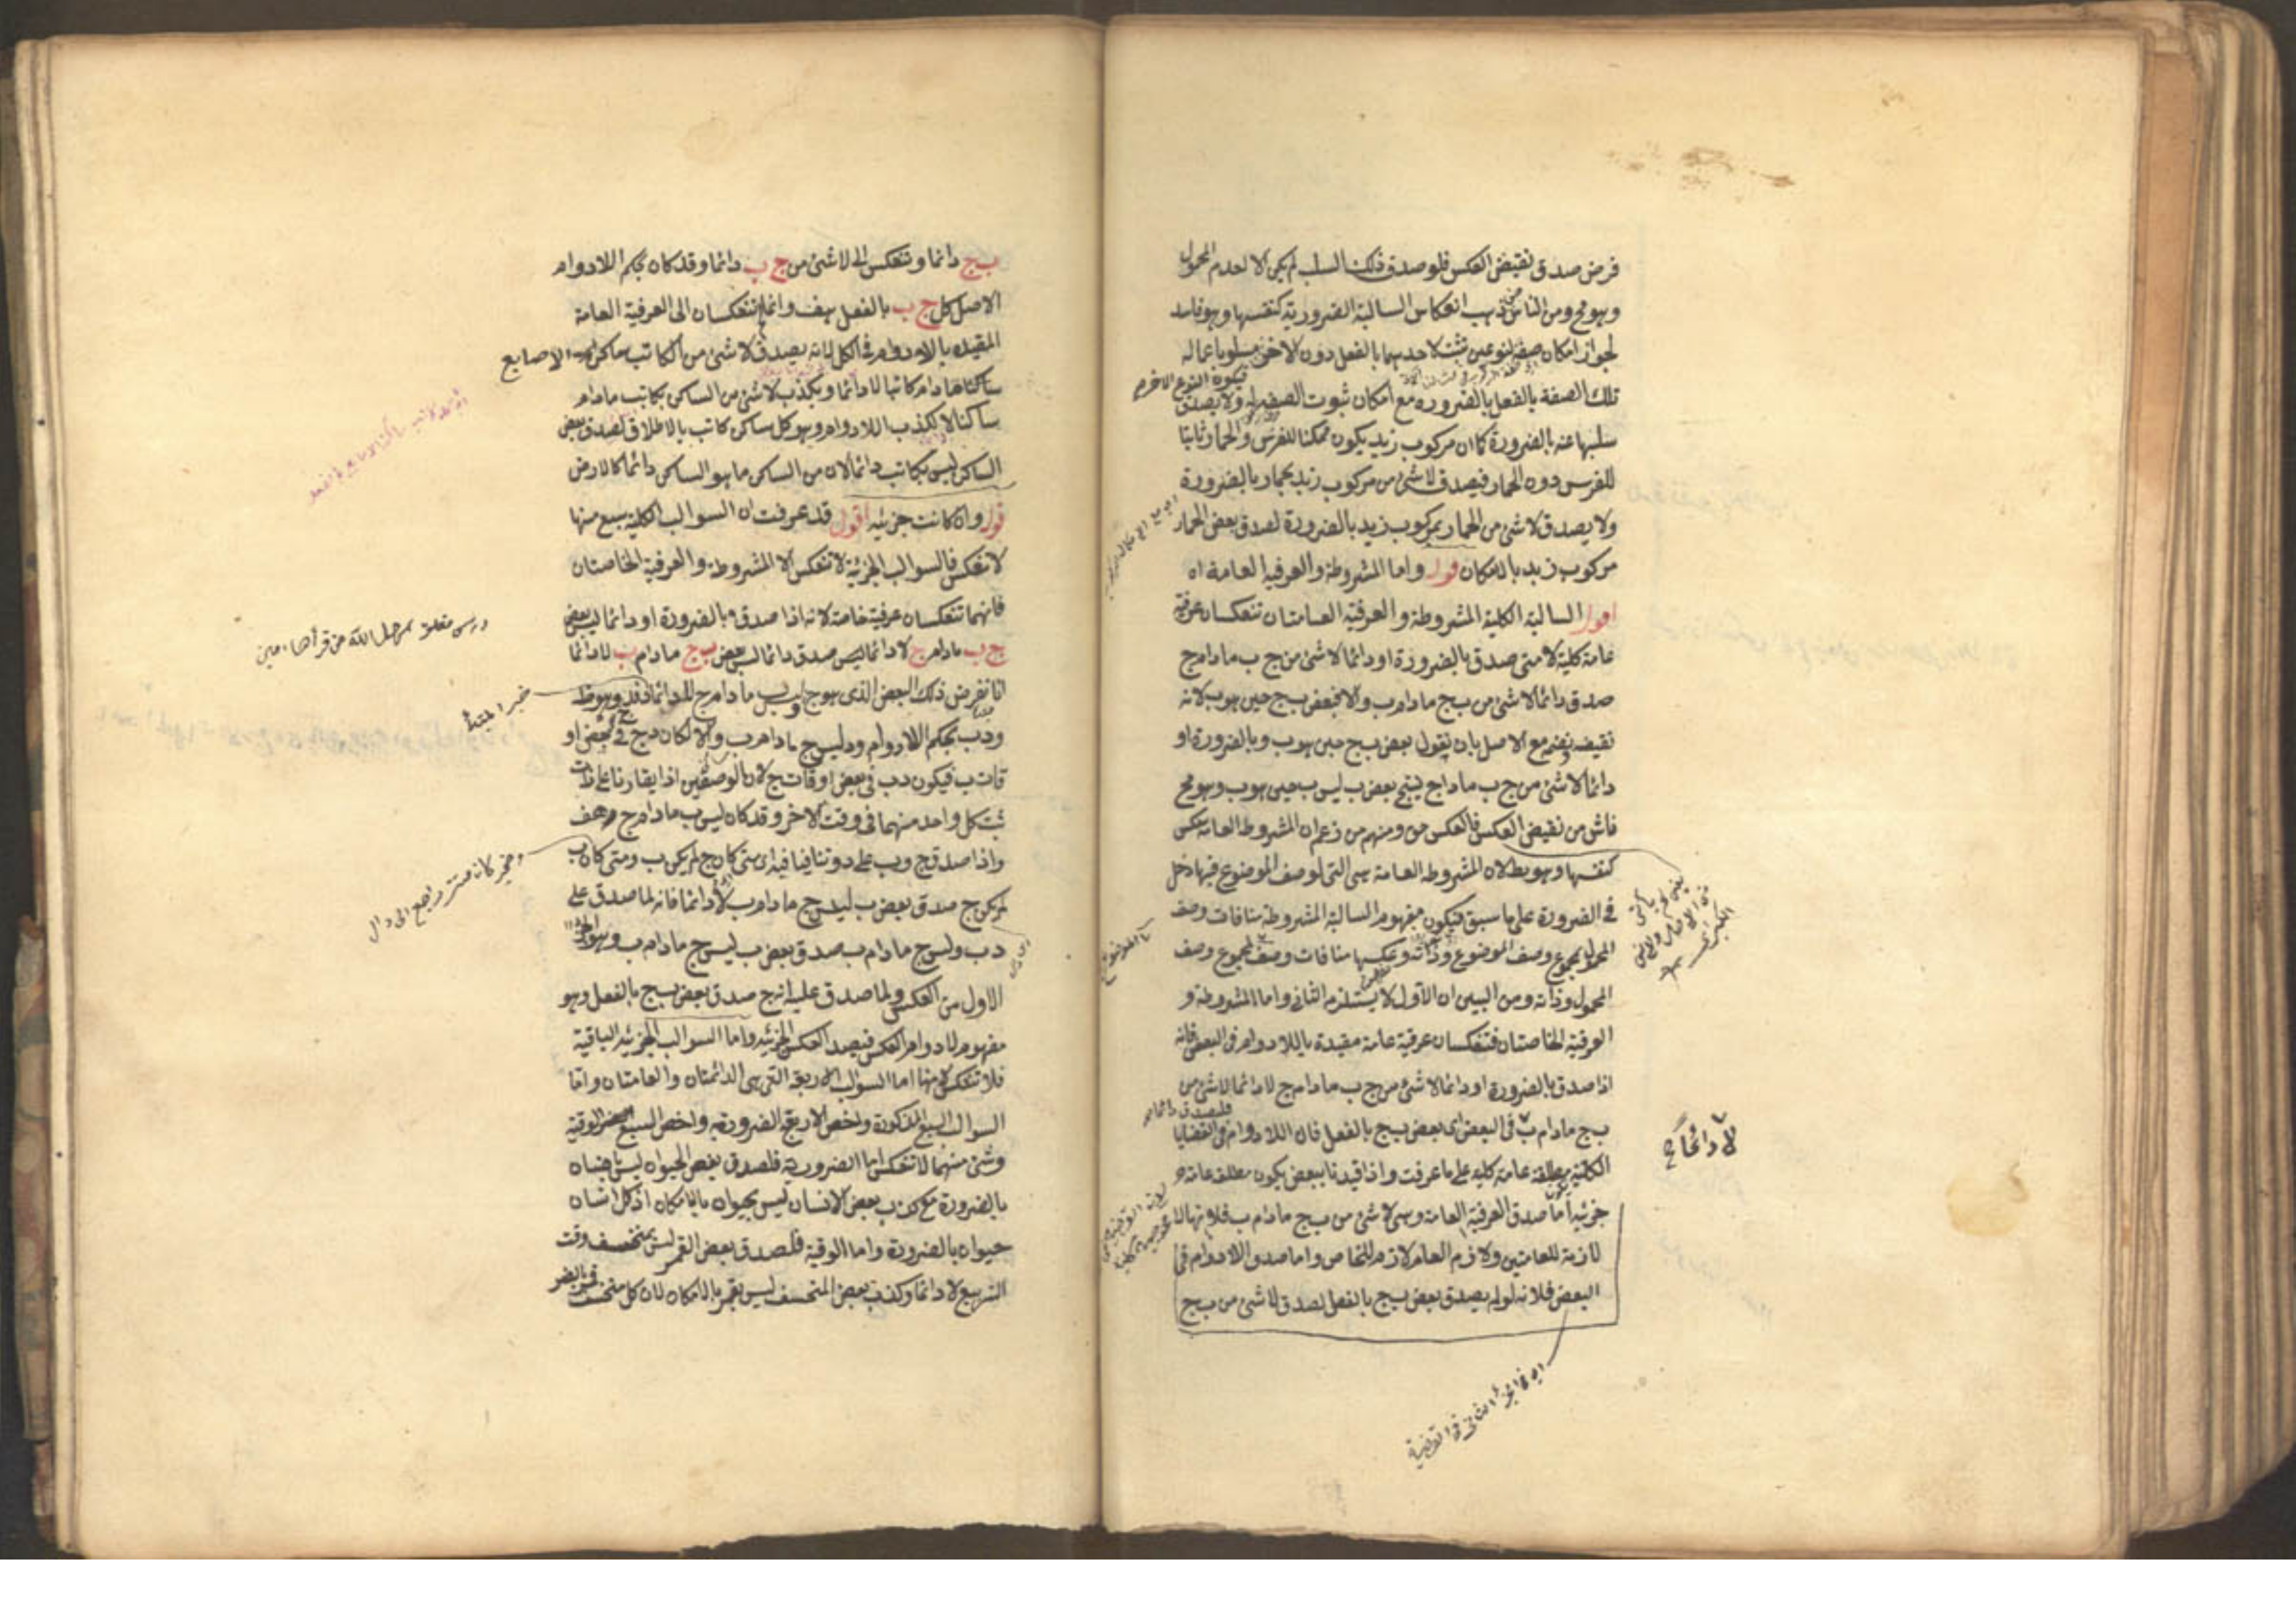 فرض صدق نقيض العكس فلو صدق ذلك السلب لم يكن الا لعدم المحمول
وهو مح ومن الناس من ذهب انعكاس السالبة الضرورية كنفسها وهو فاسد
لجواز امكان صفة لنوعين تثبت لاحدهما بالفعل دون الاخر مسلوبا عما له
فيكون النوع الاخر
تلك الصفة بالفعل بالضرورة مع امكان ثبوت الصفة له ولا يصدق
سلبها عنه بالضرورة كما ان مركوب زيد يكون ممكنا للفرس والحمار ثابتا
للفرس دون الحمار فيصدق لا شئ من مركوب زيد بحمار بالضرورة
ولا يصدق لا شئ من الحمار بمركوب زيد بالضرورة لصدق بعض الحمار
مركوب زيد بالامكان قوله واما المشروطة والعرفية العامة اه
اقول السالبة الكلية المشروطة والعرفية العامتان تنعكسان عرفية
عامة كلية لا متى صدق بالضرورة او دائما لا شئ من ج ب ما دام ج
صدق دائما لا شئ من ب ج ما دام ب والا فبعض ب ج حين هو ب لانه
نقيضه ونضم مع الاصل بان نقول بعض ب ج حين هو ب وبالضرورة او
دائما لا شئ من ج ب ما دام ج ينتج بعض ب ليس ب حين هو ب وهو مح
ناش من نقيض العكس فالعكس حق ومنهم من زعم ان المشروطة العامة تنعكس
كنفسها وهو بط لان المشروطة العامة هى التى لوصف الموضوع فيها دخل
فى الضرورة على ما سبق فيكون مفهوم السالبة المشروطة منافات وصف
المحمول لمجموع وصف الموضوع وذاته وعكسها منافات وصف لمجموع وصف
المحمول وذاته ومن البين ان الاول لا يستلزم الثانى واما المشروطة و
العرفية الخاصتان فتنعكسان عرفية عامة مقيدة باللادوام فى البعض فانه
اذا صدق بالضرورة او دائما لا شئ من ج ب ما دام ج لا دائما لا شئ من
ب ج ما دام ب فى البعض اى بعض ب ج بالفعل فان اللادوام فى القضايا
لا دائما
الكلية مطلقة عامة كلية على ما عرفت واذا قيدنا ببعض يكون مطلقة عامة
جزئية اما صدق العرفية العامة وهى لا شئ من ب ج ما دام ب فلانها
لازمة للعامتين ولازم العام لازم للخاص واما صدق اللادوام فى
البعض فلانه لو لم يصدق بعض ب ج بالفعل لصدق لا شئ من ب ج
ب ج دائما وتنعكس الى لا شئ من ج ب دائما وقد كان بحكم اللادوام
الاصل كل ج ب بالفعل هف وانما لا تنعكسان الى العرفية العامة
المقيدة باللادوام فى الكل لانه يصدق لا شئ من الكاتب ساكن الاصابع
ساكنا ما دام كاتبا لا دائما ويكذب لا شئ من الساكن بكاتب ما دام
ساكنا لا لكذب اللادوام وهو كل ساكن كاتب بالاطلاق لصدق بعض
الساكن ليس بكاتب دائما لان من الساكن ما هو الساكن دائما كالارض
قوله وان كانت جزئية اقول قد عرفت ان السوالب الكلية سبع منها
لا تنعكس فالسوالب الجزئية لا تنعكس الا المشروطة والعرفية الخاصتان
فانهما تنعكسان عرفية خاصة لانه اذا صدق بالضرورة او دائما ليس بعض
درس مغلق
ج ب ما دام ج لا دائما ليس صدق دائما ليس بعض ب ج ما دام ب لا دائما
لانا نفرض ذلك البعض الذى هو ج ليس ب ما دام ج لا دائما د فد ج وهو ظ
خبر المبتدأ
ود ب بحكم اللادوام ود ليس ج ما دام ب والا لكان د ج فى بعض او
قات ب فيكون د ب فى بعض اوقات ج لان الوصفين اذا تقارنا على ذات
ثبت كل واحد منهما فى وقت الاخر وقد كان ليس ب ما دام ج هف
واذا صدق ج وب على د وتنافيا فيه اى متى كان ج لم يكن ب ومتى كان ب
مستتر راجع الى دال
لم يكن ج صدق بعض ب ليس ج ما دام ب لا دائما فانه لما صدق على
د ب وليس ج ما دام ب صدق بعض ب ليس ج ما دام ب وهو الجزء
الاول من العكس ولما صدق عليه انه ج صدق بعض ب ج بالفعل وهو
مفهوم لا دوام العكس فيصدق العكس بجزئيه واما السوالب الجزئية الباقية
فلا تنعكس لانها اما السوالب الاربعة التى هى الدائمتان والعامتان واما
السوالب السبع المذكورة واخص الاربع الضرورية واخص السبع الوقتية
وشئ منهما لا تنعكس اما الضرورية فلصدق بعض الحيوان ليس بانسان
بالضرورة مع كذب بعض الانسان ليس بحيوان بالامكان اذ كل انسان
حيوان بالضرورة واما الوقتية فلصدق بعض القمر ليس بمنخسف وقت
التربيع لا دائما وكذب بعض المنخسف ليس بقمر بالامكان لان كل منخسف